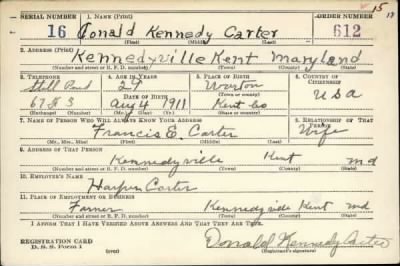 SERIAL NUMBER 1. NAME (Print) ORDER NUMBER 15
16 Donald Kennedy Carter 612
(First) (Middle) (Last)
2. ADDRESS (Print)
Kennedyville Kent Maryland
(Number and street or R. F. D. number) (Town) (County) (State)
3. TELEPHONE 4. AGE IN YEARS 5. PLACE OF BIRTH 6. COUNTRY OF CITIZENSHIP
Still Pond 29 Worton USA
DATE OF BIRTH (Town or county)
67 F 3 Aug 4 1911 Kent Co
(Exchange) (Number) (Mo.) (Day) (Yr.) (State or country)
7. NAME OF PERSON WHO WILL ALWAYS KNOW YOUR ADDRESS 8. RELATIONSHIP OF THAT PERSON
Francis E. Carter Wife
(Mr., Mrs., Miss) (First) (Middle) (Last)
9. ADDRESS OF THAT PERSON
Kennedyville Kent Md
(Number and street or R. F. D. number) (Town) (County) (State)
10. EMPLOYER'S NAME
Harper Carter
11. PLACE OF EMPLOYMENT OR BUSINESS
Farmer Kennedyville Kent Md
(Number and street or R. F. D. number) (Town) (County) (State)
I AFFIRM THAT I HAVE VERIFIED ABOVE ANSWERS AND THAT THEY ARE TRUE.
REGISTRATION CARD Donald Kennedy Carter
D. S. S. Form 1 (over) (Registrant's signature)